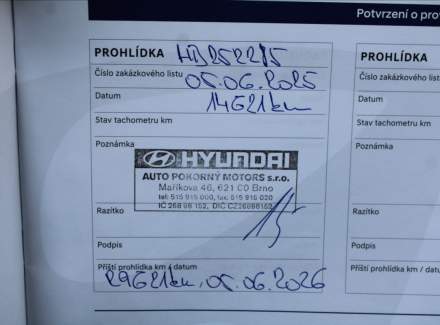 Potvrzení o pro
PROHLÍDKA HB252215
Číslo zakázkového listu
05.06.2025
Datum
14621km
Stav tachometru km
Poznámka
HYUNDAI
AUTO POKORNÝ MOTORS s.r.o.
Maříkova 46, 621 00 Brno
tel: 515 915 000, fax: 515 915 020
IČ 268 98 152, DIČ CZ26898152
Razítko
Podpis
Příští prohlídka km / datum
29621km, 05.06.2026
PROHLÍDKA
Číslo zakázkového lis
Datum
Stav tachometru km
Poznámka
Razítko
Podpis
Příští prohlídka km / datu